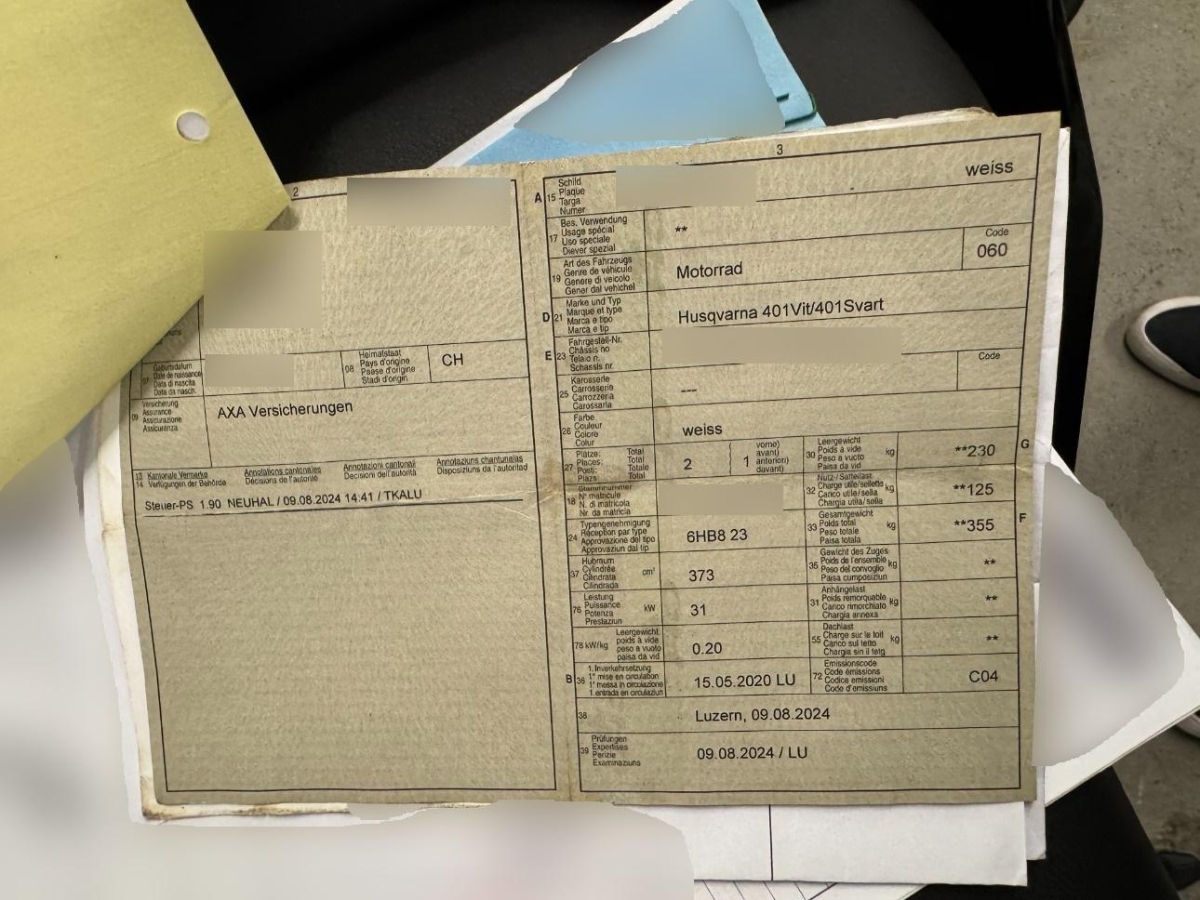 2
07 Geburtsdatum
Date de naissance
Data di nascita
Data da nasch.
08
Heimatstaat
Pays d'origine
Paese d'origine
Stadi d'origin
CH
09
Versicherung
Assurance
Assicurazione
Assicuranza
AXA Versicherungen
13 Kantonale Vermerke
14 Verfügungen der Behörde
Annotations cantonales
Décisions de l'autorité
Annotazioni cantonali
Decisioni dell'autorità
Annotaziuns chantunalas
Disposiziuns da l'autoritad
Steuer-PS 1.90 NEUHAL / 09.08.2024 14:41 / TKALU
3
A 15
Schild
Plaque
Targa
Numer
weiss
17
Bes. Verwendung
Usage spécial
Uso speciale
Diever spezial
**
19
Art des Fahrzeugs
Genre de véhicule
Genere di veicolo
Gener dal vehichel
Motorrad
Code
060
D 21
Marke und Typ
Marque et type
Marca e tipo
Marca e tip
Husqvarna 401Vit/401Svart
E 23
Fahrgestell-Nr.
Châssis no
Telaio n.
Schassis nr.
25
Karosserie
Carrosserie
Carrozzeria
Carossaria
---
Code
26
Farbe
Couleur
Colore
Colur
weiss
27
Plätze: Total
Places: Total
Posti: Totale
Plazs: Total
2
( vorne)
1 anteriori)
( davant)
30
Leergewicht
Poids à vide
Peso a vuoto
Paisa da vid
kg
**230
G
18
Stammnummer
N° matricule
N. di matricola
Nr. da matricla
32
Nutz-/Sattellast
Charge utile/sellette
Carico utile/sella
Chargia utila/sella
kg
**125
24
Typengenehmigung
Réception par type
Approvazione del tipo
Approvaziun dal tip
6HB8 23
33
Gesamtgewicht
Poids total
Peso totale
Paisa totala
kg
**355
F
37
Hubraum
Cylindrée
Cilindrata
Cilindrada
cm³
373
35
Gewicht des Zuges
Poids de l'ensemble
Peso del convoglio
Paisa cumposiziun
kg
**
76
Leistung
Puissance
Potenza
Prestaziun
kW
31
31
Anhängelast
Poids remorquable
Carico rimorchiato
Chargia annexa
kg
**
78 kW/kg
Leergewicht
poids à vide
peso a vuoto
paisa da vid
0.20
55
Dachlast
Charge sur le toit
Carico sul tetto
Chargia sin il tetg
kg
**
B 36
1. Inverkehrsetzung
1re mise en circulation
1a messa in circolazione
1. entrada en circulaziun
15.05.2020 LU
72
Emissionscode
Code émissions
Codice emissioni
Code d'emissiuns
C04
38
Luzern, 09.08.2024
39
Prüfungen
Expertises
Perizie
Examinaziuns
09.08.2024 / LU